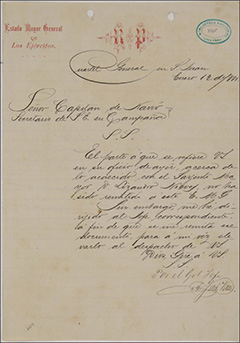 Estado Mayor General
de
Los Ejércitos.
Cuartel General en S. Juan
Enero 12 de
Señor Capitan de Navio
Secretario de S.E. en Campaña
S. S.
El parte á que se refiere VS
en su oficio de ayer, acerca de
lo acaecido con el Sargento Ma
yor D. Lizandro no ha
sido remitido a este E. M. G.
Sin embargo, me he di
rijido al Jefe correspondiente
á fin de que se me remita ese
documento, para á mi vez ele
varlo al despacho de VS
Dios gue á VS
S. S.
Por el Gral Jefe